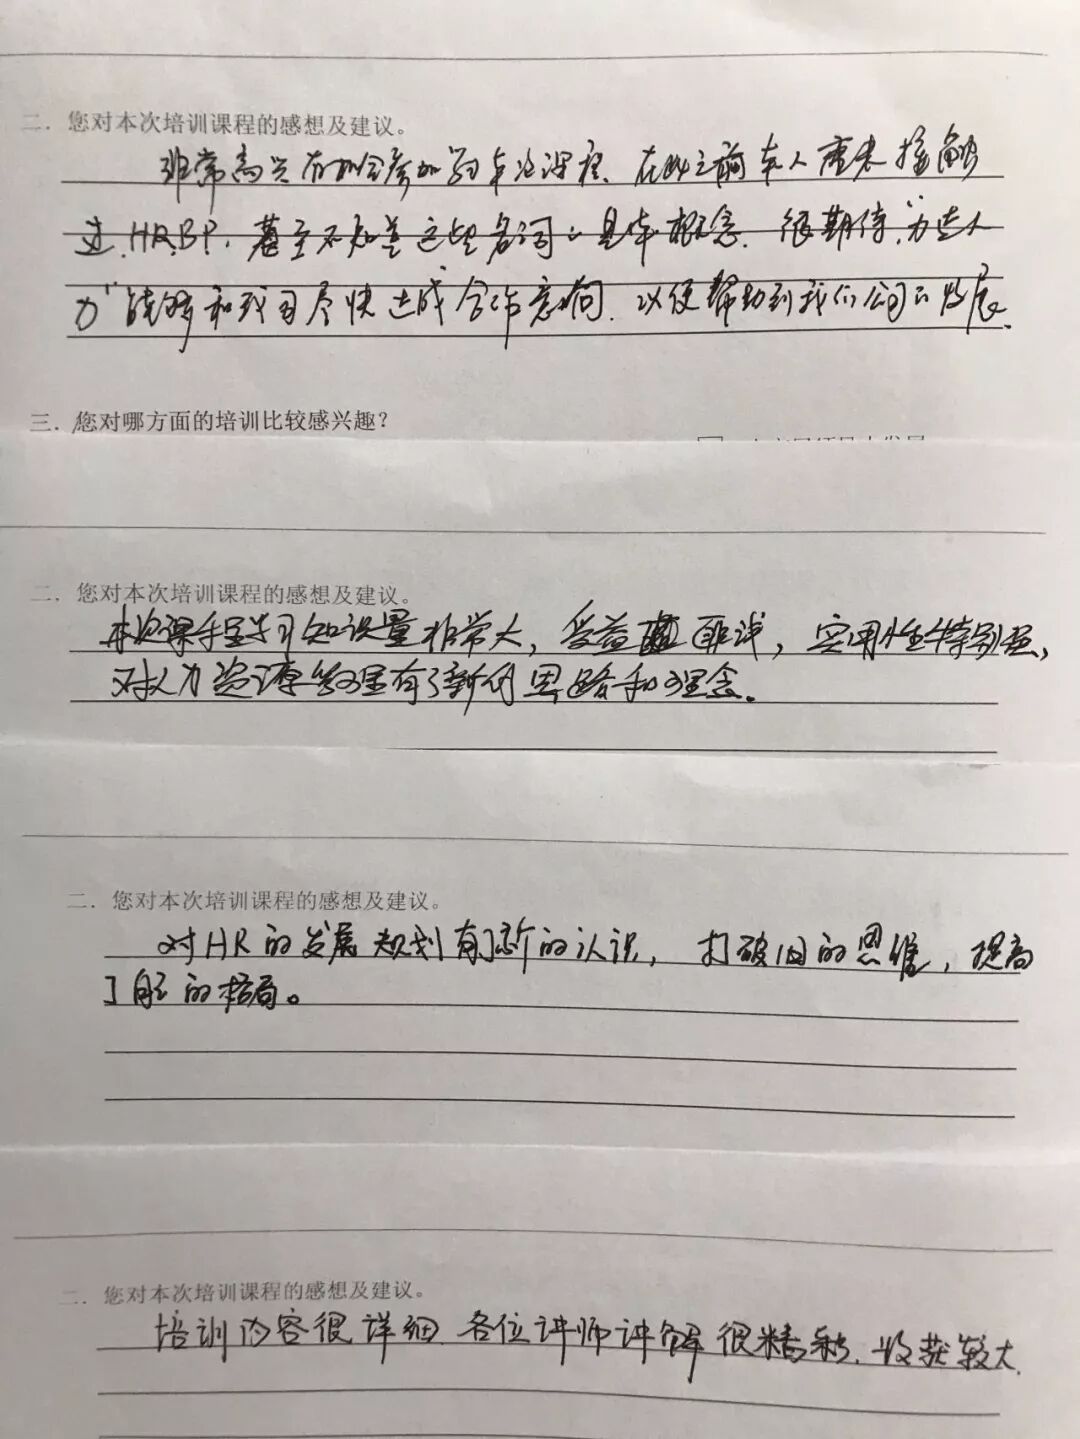 二. 您对本次培训课程的感想及建议。
非常高兴有机会参加的本次课程. 在此之前本人未接触
过 HRBP. 甚至不知道这些名词的具体概念. 很期待"
力"能够和我司尽快达成合作意向. 以便帮助到我们公司的发展.
三. 您对哪方面的培训比较感兴趣?
二. 您对本次培训课程的感想及建议。
本次课程学习知识量非常大, 受益匪浅, 实用性特别强,
对人力资源管理有了新的思路和理念.
二. 您对本次培训课程的感想及建议。
对HR的发展规划有了新的认识, 打破旧的思维, 提高
了自己的格局。
二. 您对本次培训课程的感想及建议。
培训内容很详细 各位讲师讲解很精彩. 收获较大.